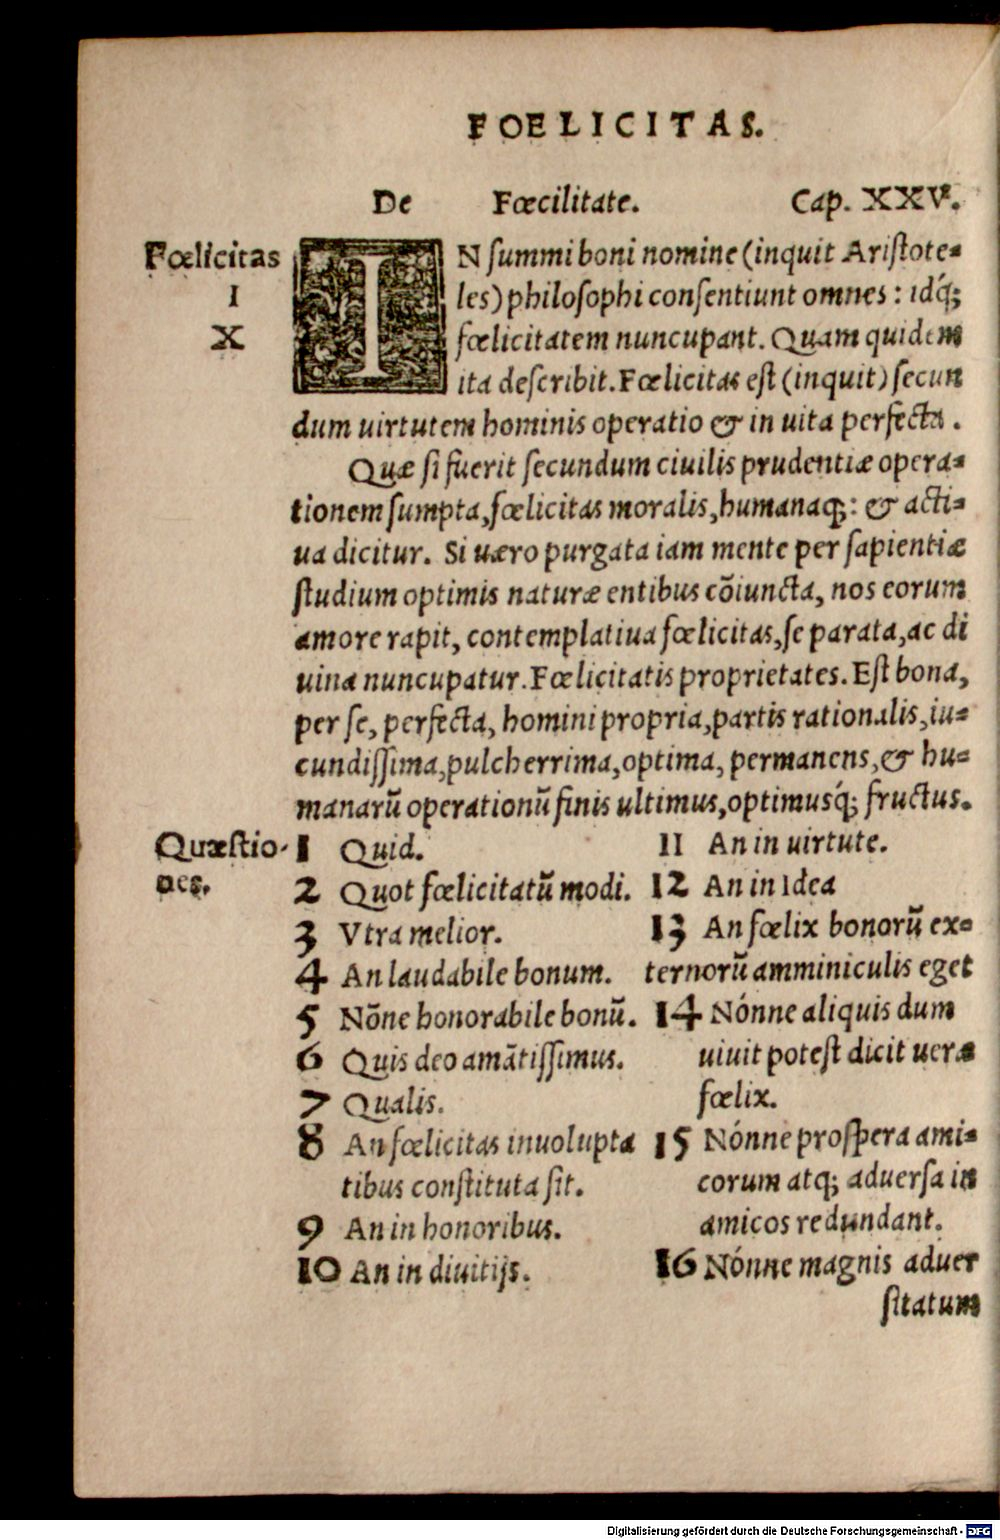 FOELICITAS.
De Fœcilitate. Cap. XXV.
Fœlicitas
I
X
IN summi boni nomine (inquit Aristote=
les) philosophi consentiunt omnes: idq́;
fœlicitatem nuncupant. Quam quidem
ita describit. Fœlicitas est (inquit) secun
dum uirtutem hominis operatio & in uita perfecta.
Quæ si fuerit secundum ciuilis prudentiæ opera=
tionem sumpta, fœlicitas moralis, humanaq;: & acti=
ua dicitur. Si uæro purgata iam mente per sapientiæ
studium optimis naturæ entibus cõiuncta, nos eorum
amore rapit, contemplatiua fœlicitas, se parata, ac di
uina nuncupatur. Fœlicitatis proprietates. Est bona,
per se, perfecta, homini propria, partis rationalis, iu=
cundissima, pulcherrima, optima, permanens, & hu=
manarũ operationũ finis ultimus, optimusq́; fructus.
Quæstio-
nes.
1 Quid.
2 Quot fœlicitatũ modi.
3 Vtra melior.
4 An laudabile bonum.
5 Nõne honorabile bonũ.
6 Quis deo amãtissimus.
7 Qualis.
8 An fœlicitas in uolupta
tibus constituta sit.
9 An in honoribus.
10 An in diuitijs.
11 An in uirtute.
12 An in Idea
13 An fœlix bonorũ ex=
ternorũ amminiculis eget
14 Nónne aliquis dum
uiuit potest dicit uere
fœlix.
15 Nónne prospera ami=
corum atq; aduersa in
amicos redundant.
16 Nónne magnis aduer
sitatum
Digitalisierung gefördert durch die Deutsche Forschungsgemeinschaft - DFG